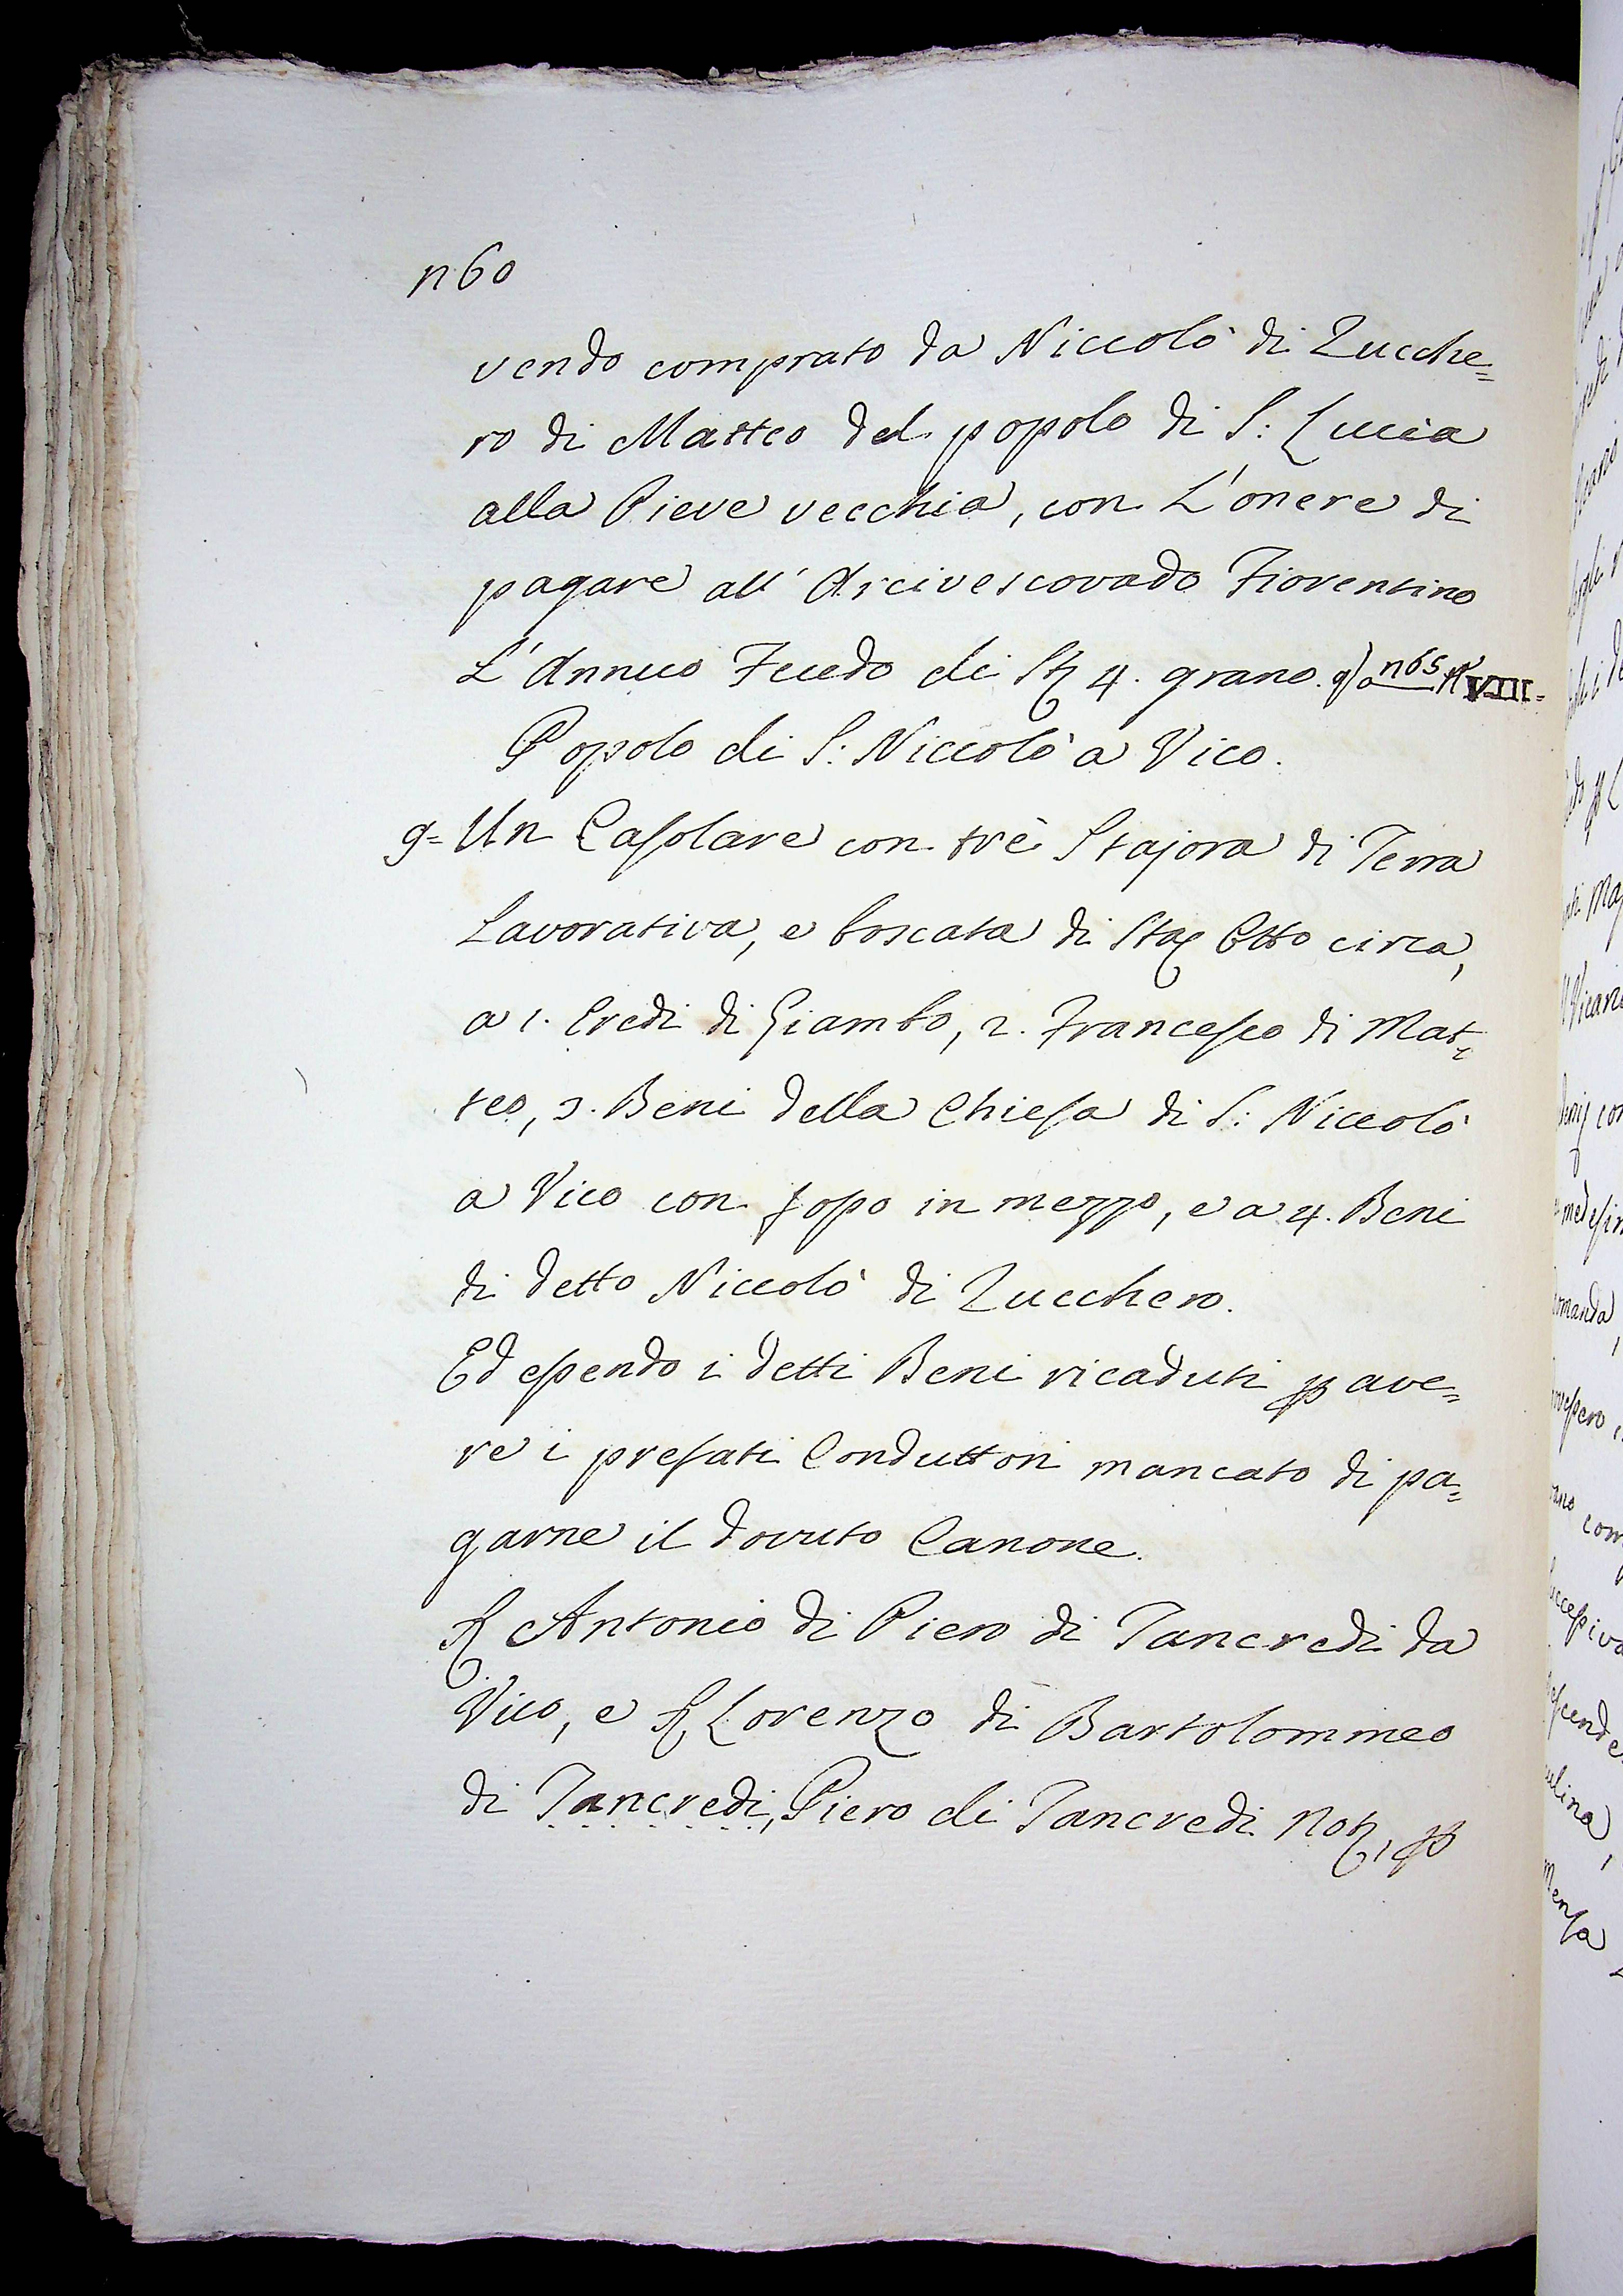 n60
vendo comprato da Niccolò di Zucche=
ro di Matteo del popolo di S: Lucia
alla Pieve vecchia, con L'onere di
pagare all'Arcivescovado Fiorentino
L'Annuo Feudo di St 4. grano. n65 VIII.
Popolo di S: Niccolò a Vico.
g= Un Casolare con trè Stajora di Terra
Lavorativa, e boscata di Sta Otto circa,
a 1. Eredi di Giambo, 2. Francesco di Mat=
teo, 3. Beni della Chiesa di S: Niccolò
a Vico con fosso in mezzo, e a 4. Beni
di detto Niccolò di Zucchero.
Ed essendo i detti Beni ricaduti p ave=
re i prefati Conduttori mancato di pa=
garne il dovuto Canone.
Antonio di Piero di Tancredi da
Vico, e Lorenzo di Bartolommeo
di Tancredi, Piero di Tancredi Not, p